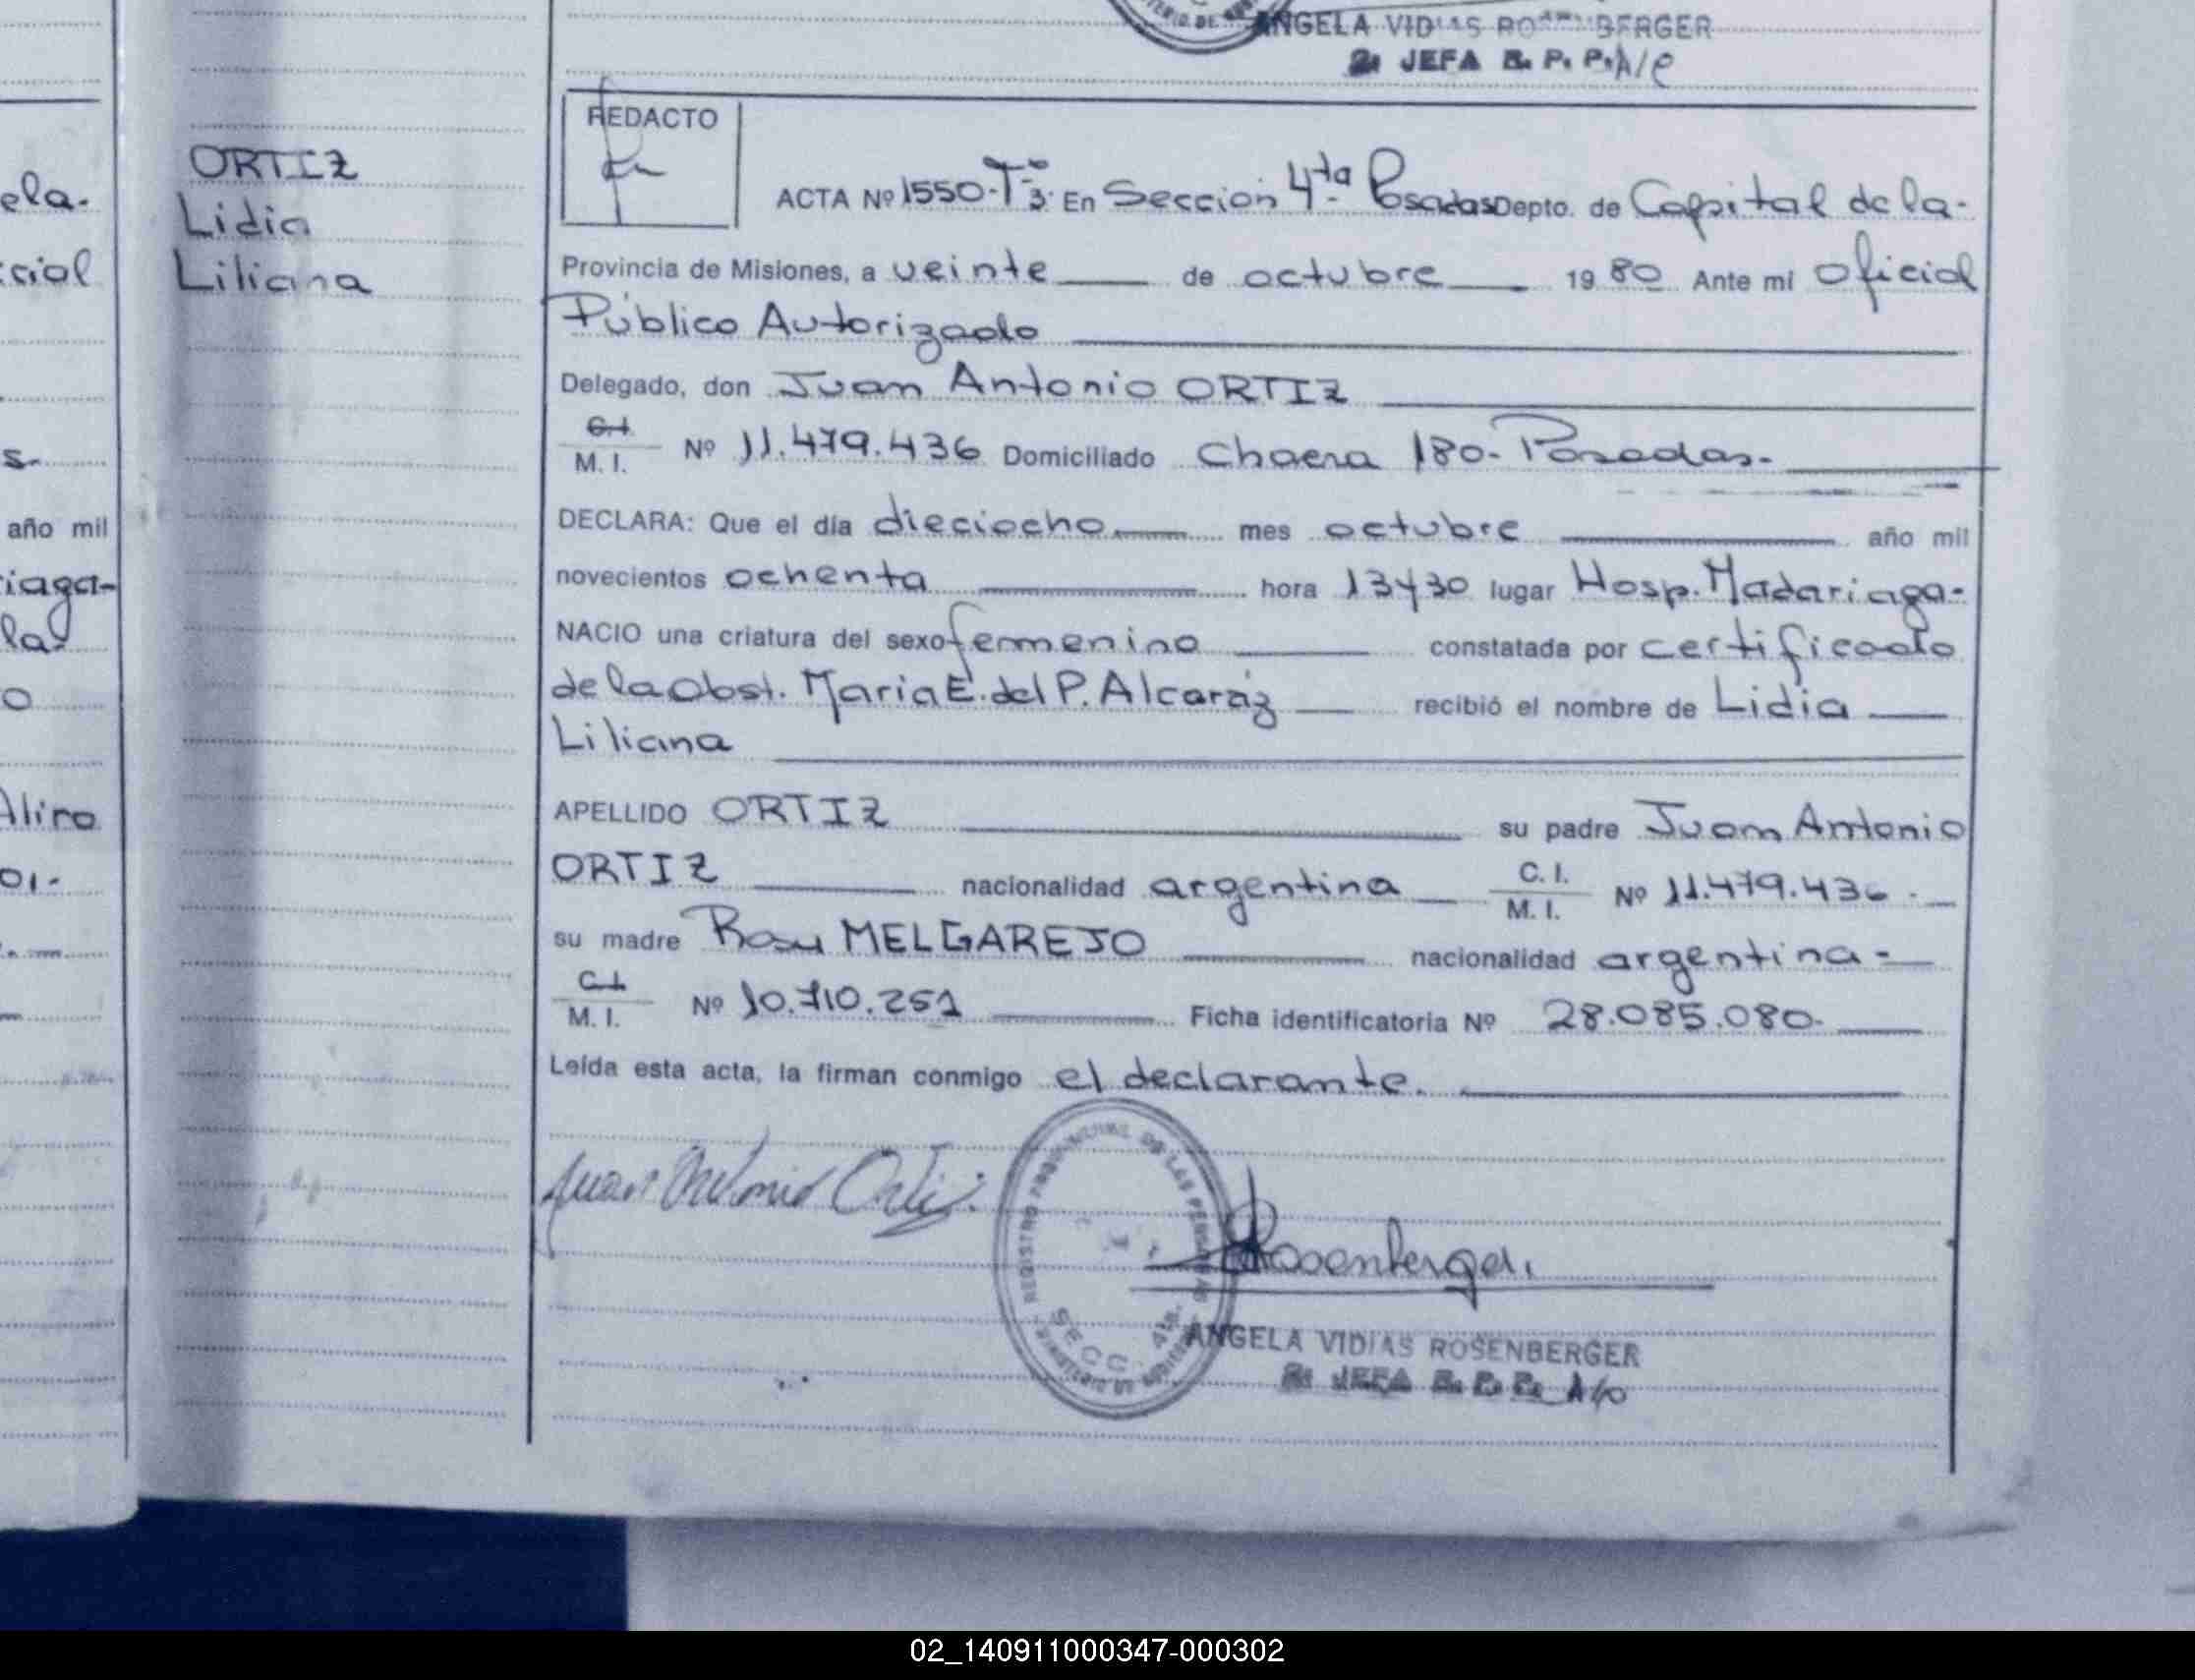 ANGELA VIDIAS ROSENBERGER
2ª JEFA R. P. P. A/C
REDACTO
ORTIZ
Lidia
Liliana
ACTA Nº 1550-Tº 3: En Sección 4ta Posadas Depto. de Capital de la-
Provincia de Misiones, a veinte de octubre 1980 Ante mi Oficial
Público Autorizado
Delegado, don Juan Antonio ORTIZ
C.I. M. I. Nº 11.479.436 Domiciliado Chacra 180- Posadas-
DECLARA: Que el día dieciocho mes octubre año mil
novecientos ochenta hora 13y30 lugar Hosp. Madariaga-
NACIO una criatura del sexo femenino constatada por certificado
de la Obst. María E. del P. Alcaráz recibió el nombre de Lidia
Liliana
APELLIDO ORTIZ su padre Juan Antonio
ORTIZ nacionalidad argentina C. I. M. I. Nº 11.479.436.-
su madre Rosa MELGAREJO nacionalidad argentina-
C.I. M. I. Nº 10.710.251 Ficha identificatoria Nº 28.085.080-
Leída esta acta, la firman conmigo el declarante.
Juan Antonio Ortiz
REGISTRO PROVINCIAL DE LAS PERSONAS
SECC. 4ta.
Rosenberger
ANGELA VIDIAS ROSENBERGER
2ª JEFA R. P. P. A/C
ela.
cial
s-
año mil
iaga-
la
o
Aliro
01.-
02_140911000347-000302